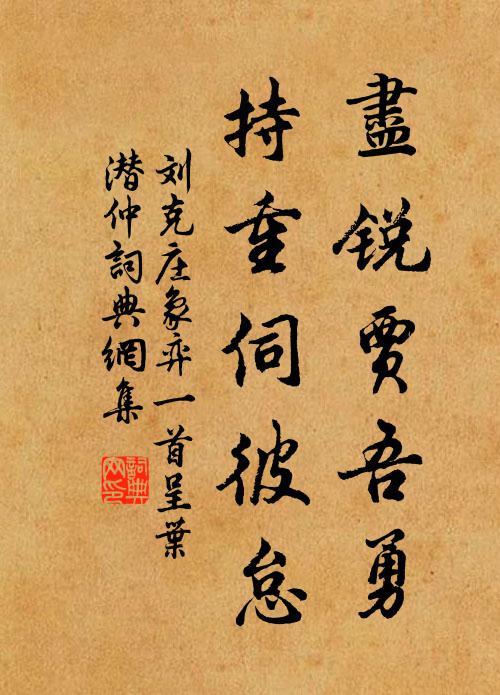 盡鋭賈吾勇
持重伺彼怠
刘克庄象弈一首呈葉
潜仲詞典網集
詞典
网印